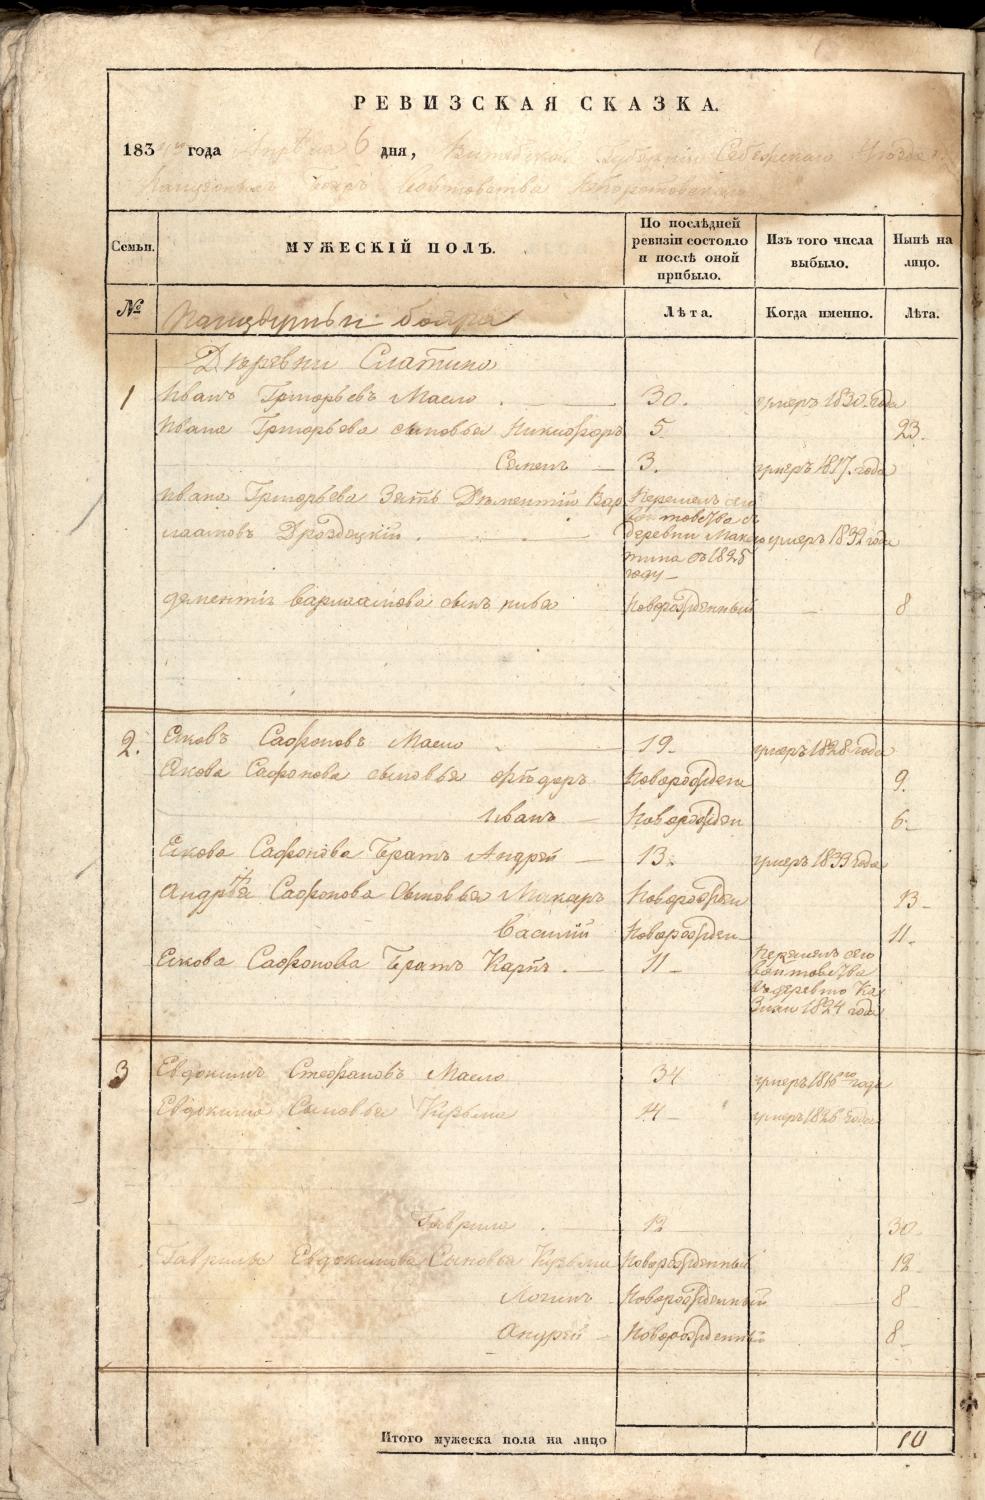 РЕВИЗСКАЯ СКАЗКА.
183 года Апреля 6 дня, Витебской губернiи Себежскаго Уезда
Панцырныхъ Бояръ Войтовства
Семьи. МУЖЕСКIЙ ПОЛЪ. По послѣдней ревизiи состояло и послѣ оной прибыло. Изъ того числа выбыло. Нынѣ на лицо.
№ Панцырныи бояра Лѣта. Когда именно. Лѣта.
Деревни Слатино
1 Иванъ Григорьевъ Масло 30. умеръ 1830. года
Ивана Григорьева сыновья Никифоръ 5 23.
Семенъ 3. умеръ 1817. года
Ивана Григорьева Зять Дементiй Вар
лаамовъ Дроздецкiй Перешелъ сего войтовства съ деревни въ 1825 году умеръ 1832 года
дементiя варлаамова сынъ Новорожденный 8
2. Яковъ Сафроновъ Масло 19. умеръ 1828 года
Якова Сафронова сыновья Федеръ Новорожден 9.
Иванъ Новорожден 6
Якова Сафронова Братъ Андрей 13. умеръ 1833 года
Андрѣя Сафронова Сыновья Макаръ Новорожден 13
Василiй Новорожден 11.
Якова Сафронова Братъ Карпъ 11 перешелъ сего войтовства въ деревню 1824 года
3 Евдокимъ Стефановъ Масло 34 умеръ 1816го года
Евдокима Сыновья Кузьма 14 умеръ 1826 года
Гаврила 12 30
Гаврилы Евдокимова Сыновья Кузьма Новорожденный 12
Логинъ Новорожденный 8
Андрей Новорожденный 8
Итого мужеска пола на лицо 10